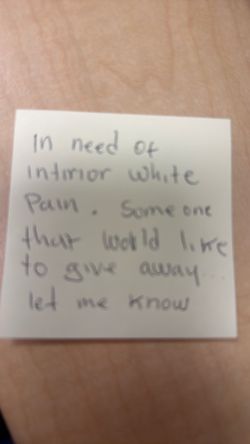 In need of
intirior white
Pain. Someone
that world like
to give away...
let me know